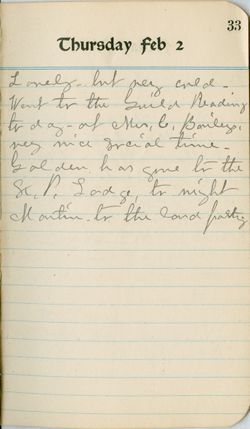 33
Thursday Feb 2
Lovely - but very cold -
Went to the Guild Reading
to day - at Mrs, C, Baileys,
very nice social time -
Golden has gone to the
K, P, Lodge, to night
Martin - to the card party